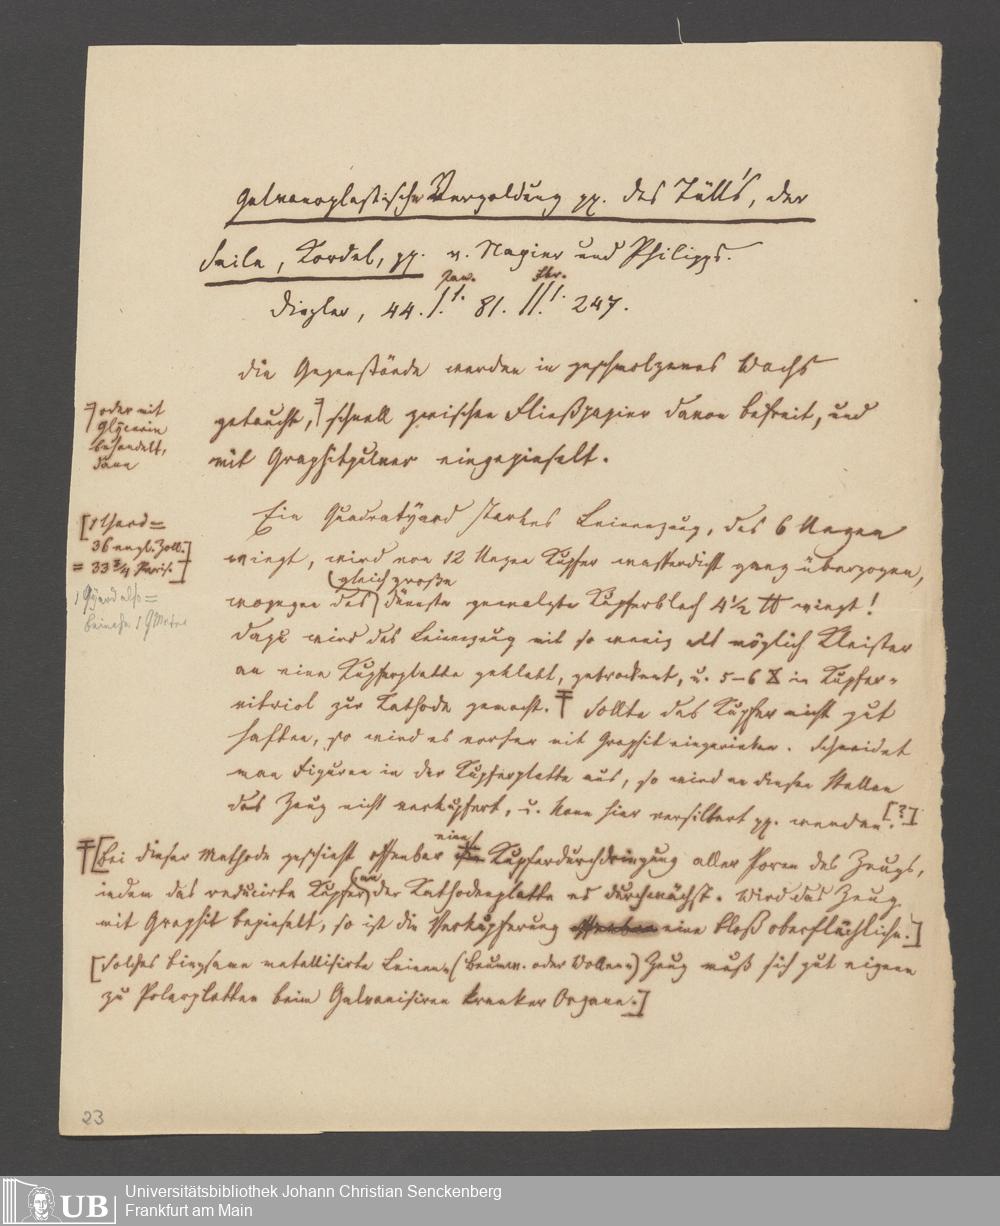 Galvanoplastische Vergoldung pp. des Tüll's, der
Seile, Kordel, pp. v. Napier und Philipps.
Jan. Fbr.
Dingler, 44. I. 1. 81. II. 1. 247.
Die Gegenstände werden in geschmolzenes Wachs
getaucht, schnell zwischen Fließpapier davon befreit, und
mit Graphitpulver eingepinselt.
oder mit
Glycerin
behandelt,
dann
Ein Quadratyard starkes Leinenzeug, das 6 Unzen
wiegt, wird von 12 Unzen Kupfer wasserdicht ganz überzogen,
gleich große
wogegen das dünnste gewalzte Kupferblech 4½ ℔ wiegt!
[1 Yard =
36 engl. Zoll.
= 33 ¾ Paris.]
1 Qyard also =
beinahe 1 QMeter
Dazu wird das Leinenzeug mit so wenig als möglich Kleister
an eine Kupferplatte geklebt, getrocknet, u. 5–6 in Kupfer-
vitriol zur Kathode gemacht. Sollte das Kupfer nicht gut
haften, so wird es vorher mit Graphit eingerieben. Schneidet
man Figuren in der Kupferplatte aus, so wird an diesen Stellen
das Zeug nicht verkupfert, u. kann hier versilbert pp. werden. [?]
[Bei dieser Methode geschieht offenbar eine Kupferdurchdringung aller Poren des Zeugs,
indem das reducirte Kupfer an der Kathodenplatte es durchwächst. Wird das Zeug
mit Graphit bepinselt, so ist die Verkupferung eine bloß oberflächliche.]
[Solches biegsame metallisirte Leinen- (Baumw. oder Wollen-) Zeug muß sich gut eignen
zu Polarplatten beim Galvanisiren kranker Organe.]
23
UB
Universitätsbibliothek Johann Christian Senckenberg
Frankfurt am Main